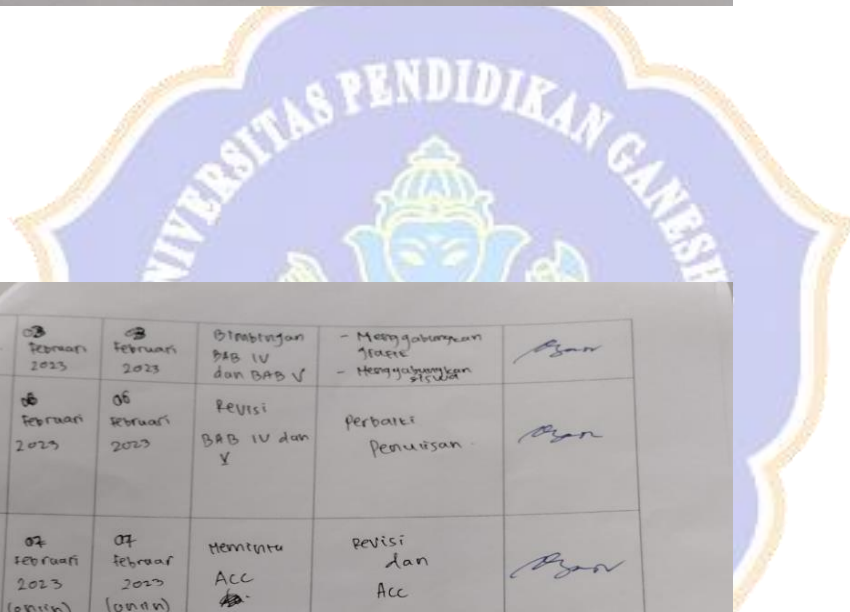 UNIVERSITAS PENDIDIKAN GANESH
03
Februari
2023
03
Februari
2023
Bimbingan
BAB IV
dan BAB V
- Menggabungkan
grafik
- Menggabungkan
siswa
06
Februari
2023
06
Februari
2023
Revisi
BAB IV dan
V
Perbaiki
Penulisan.
07
Februari
2023
(onlin)
07
Februar
2023
(onlin)
Meminta
ACC
Revisi
dan
Acc